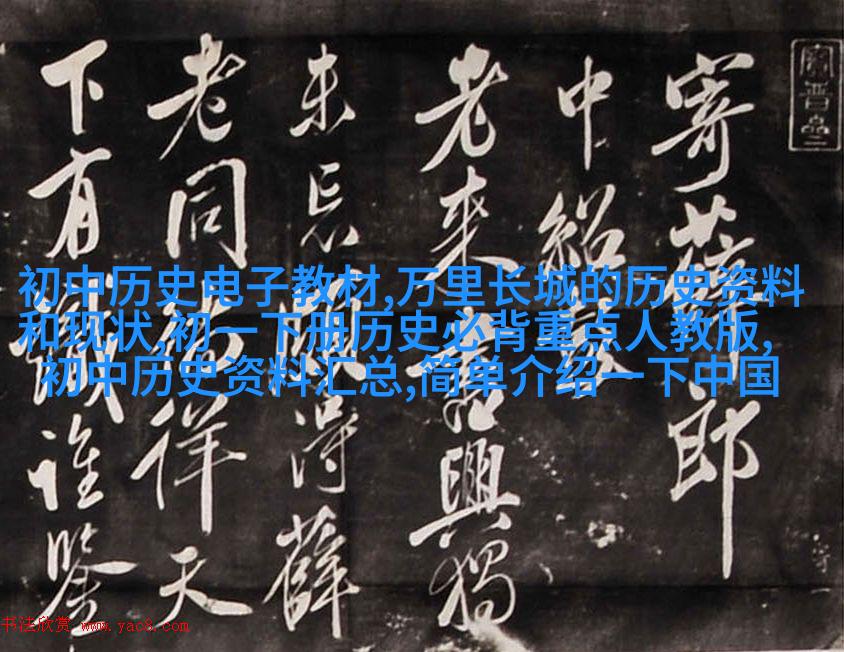 寄薛郎
中紹彭
老來書興獨
未忘頗得薛
老同徜徉天
下有識誰鑒
初中历史电子教材,万里长城的历史资料
和现状,初一下册历史必背重点人教版,
初中历史资料汇总,简单介绍一下中国
书法欣赏 www.yac8.com